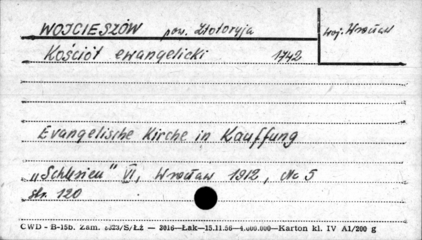 WOJCIESZÓW pow. Złotoryja woj. Wrocław
Kościół ewangelicki 1742
Evangelische Kirche in Kauffung
„Schlesien" VI, Wrocław 1912, No 5
str. 120
CWD - B-15b. Zam. 5323/S/Łż — 3016—Łak—15.11.56—4.000.000—Karton kl. IV A1/200 g